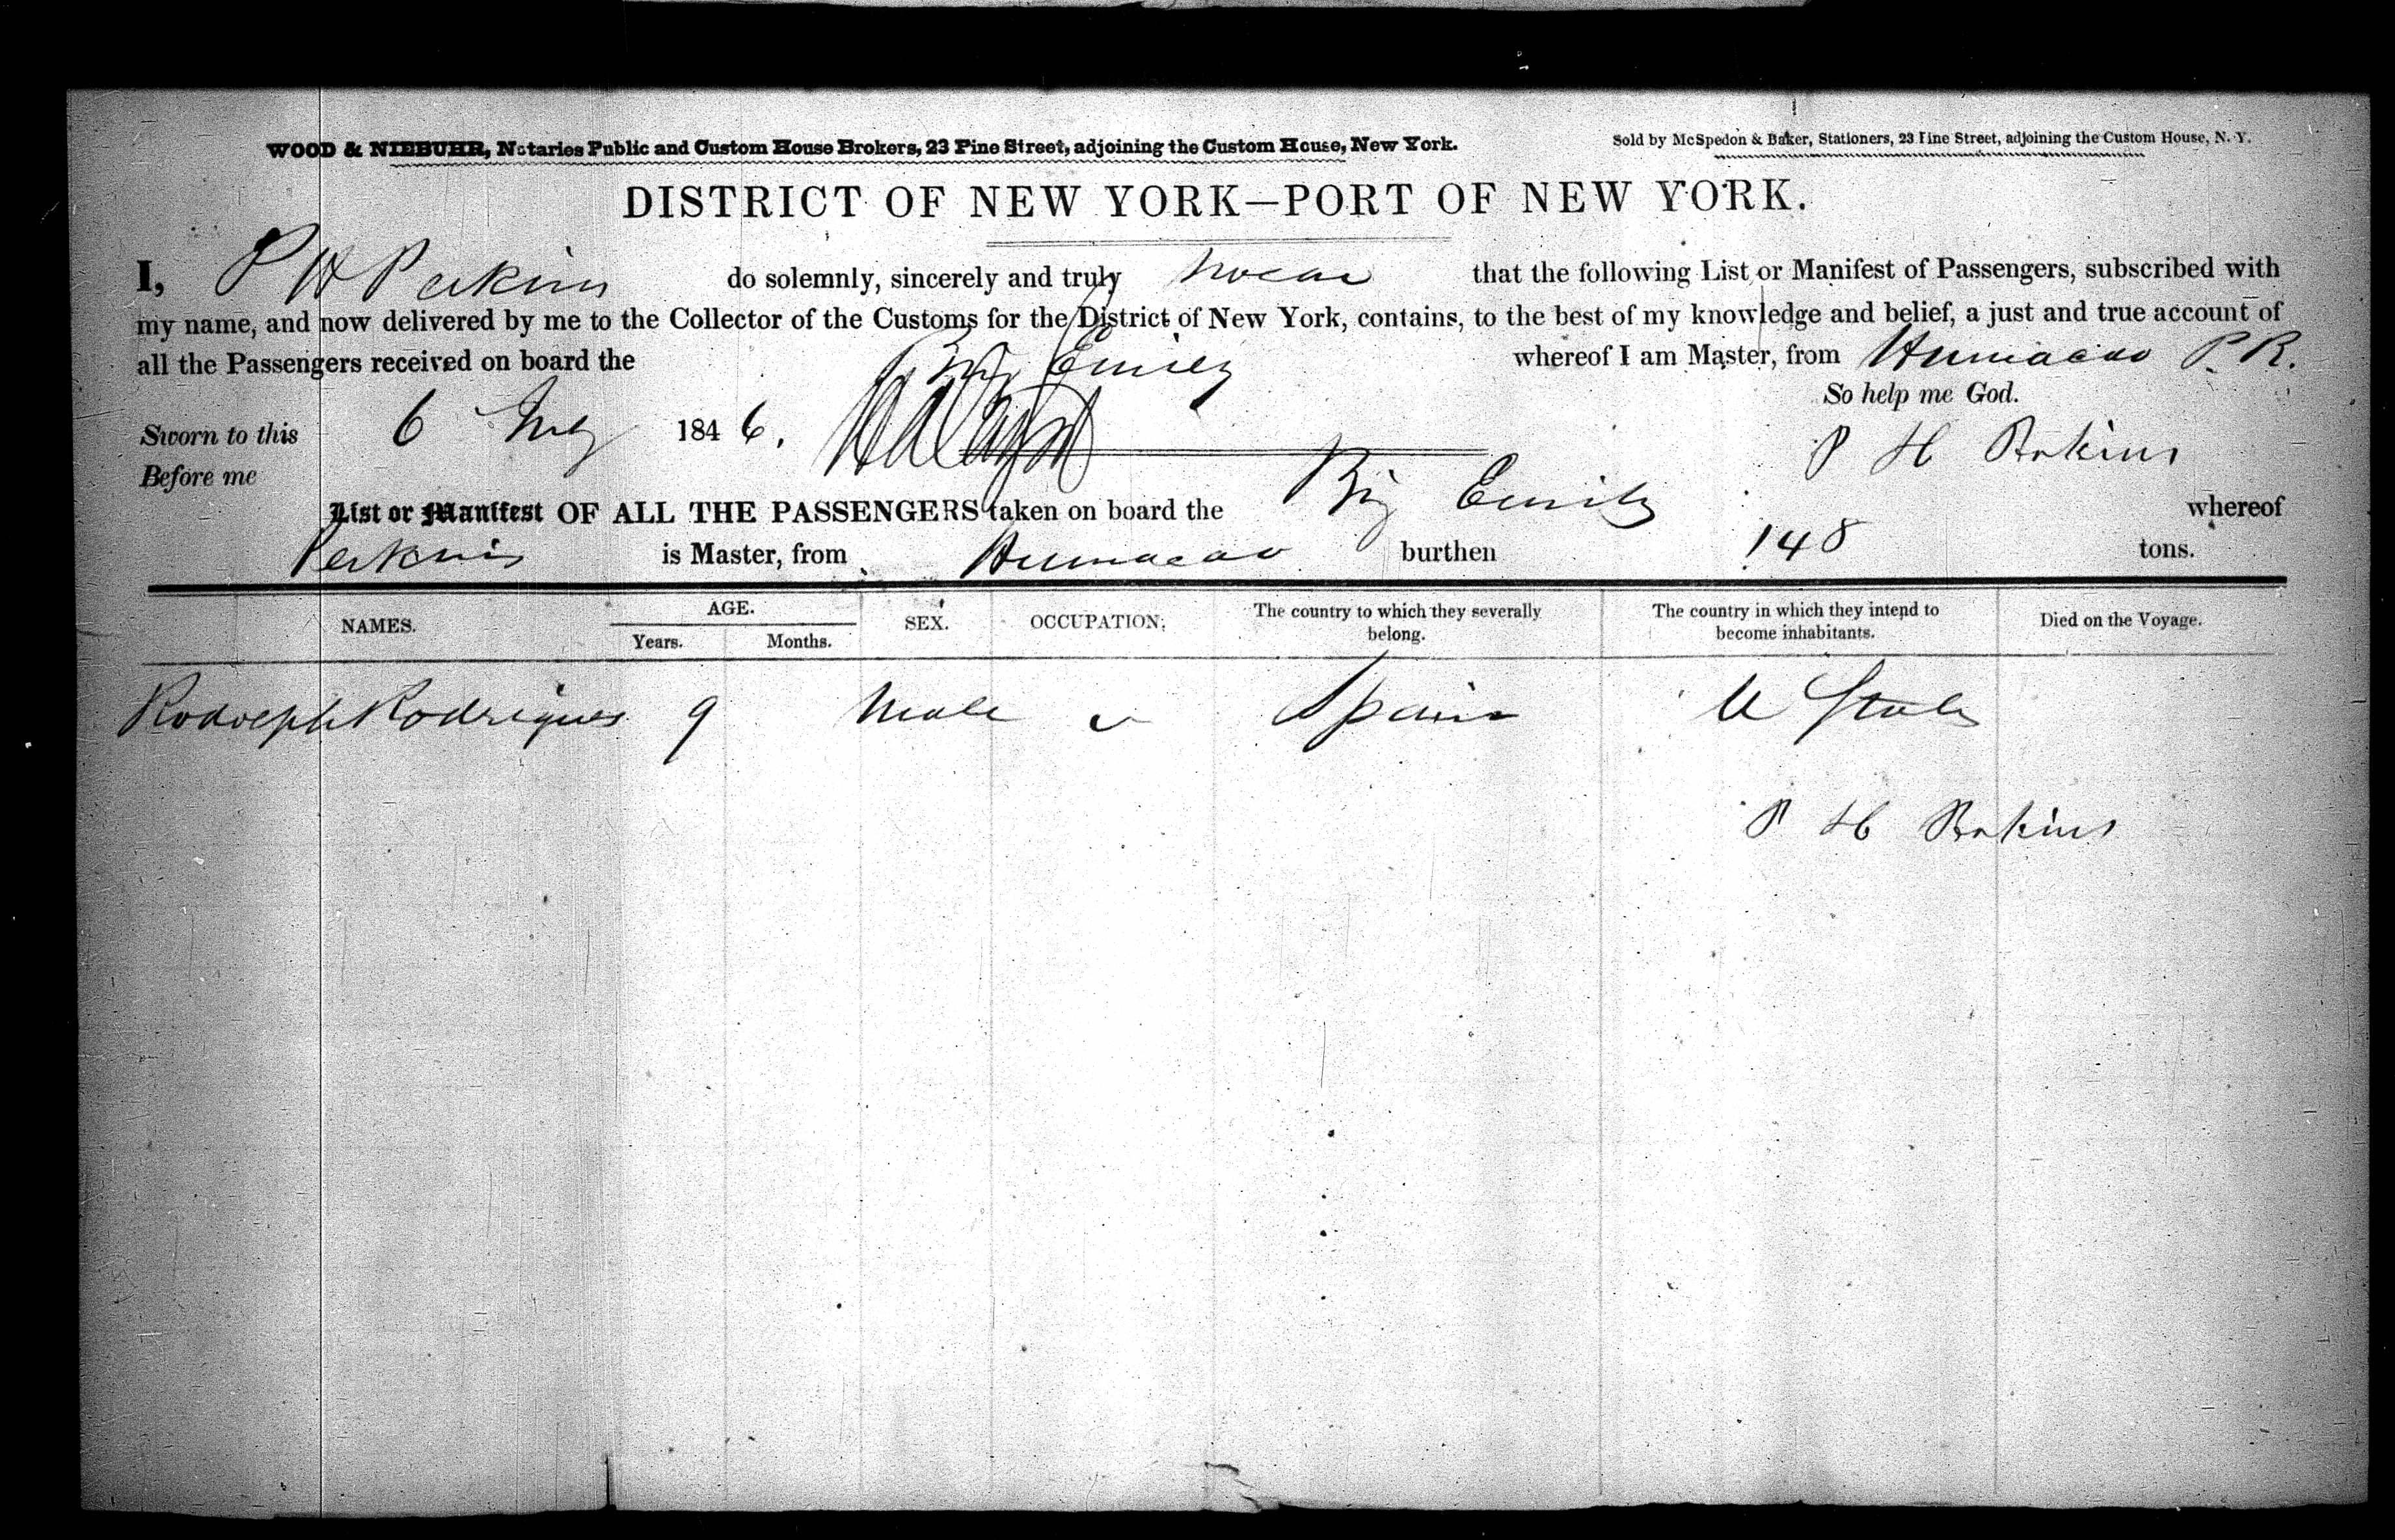 WOOD & NIEBUHR, Notaries Public and Custom House Brokers, 23 Pine Street, adjoining the Custom House, New York.
Sold by McSpedon & Baker, Stationers, 23 Pine Street, adjoining the Custom House, N. Y.
DISTRICT OF NEW YORK—PORT OF NEW YORK.
I, P H Perkins do solemnly, sincerely and truly swear that the following List or Manifest of Passengers, subscribed with
my name, and now delivered by me to the Collector of the Customs for the District of New York, contains, to the best of my knowledge and belief, a just and true account of
all the Passengers received on board the Brig Emily whereof I am Master, from Humacao P. R.
So help me God.
Sworn to this 6 July 1846.
P H Perkins
Before me
List or Manifest OF ALL THE PASSENGERS taken on board the Brig Emily whereof
Perkins is Master, from Humacao burthen 148 tons.
NAMES. AGE. Years. Months. SEX. OCCUPATION. The country to which they severally belong. The country in which they intend to become inhabitants. Died on the Voyage.
Rodolph Rodrigues 9 Male Spain U States
P H Perkins